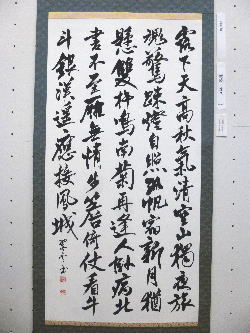 露下天高秋氣清空山獨夜旅
魂驚疎燈自照孤帆宿新月猶
懸雙杵鳴南菊再逢人臥病北
書不至雁無情步簷倚仗看牛
斗銀漢遥應接鳳城